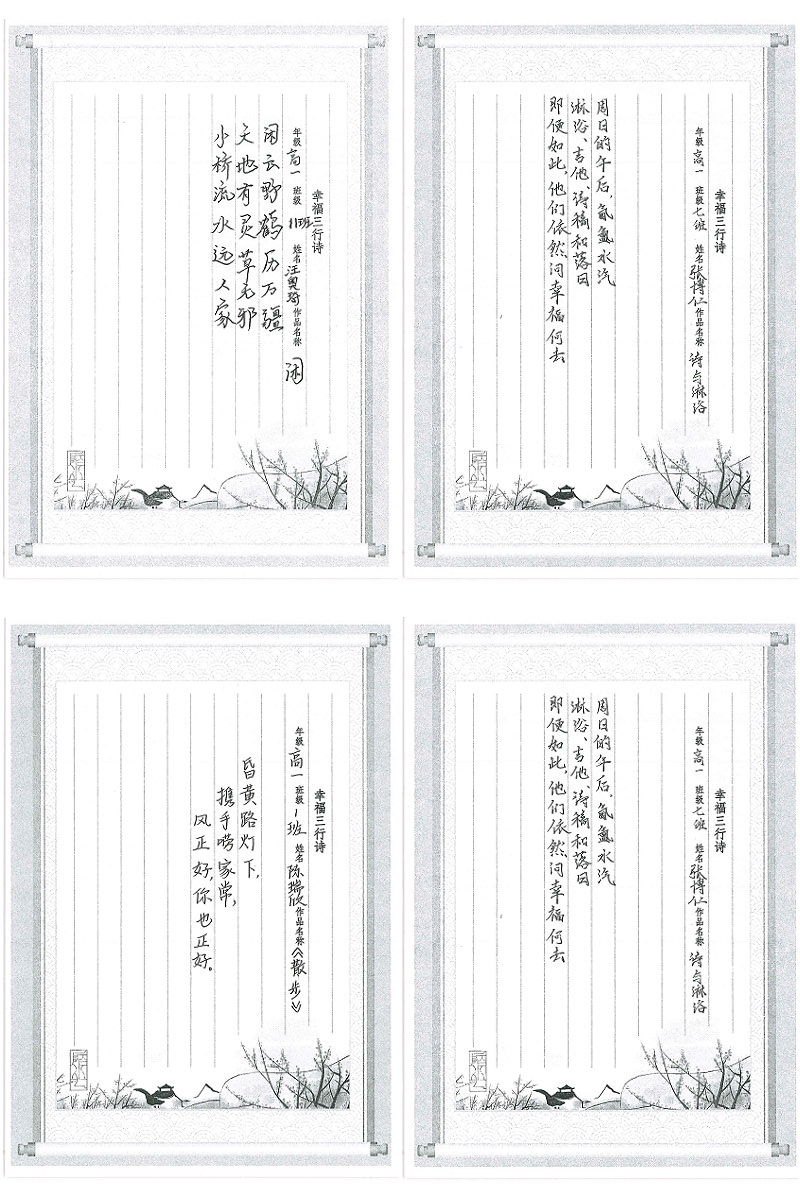 幸福三行诗
年级 高一 班级 11班 姓名 汪奥琦 作品名称 闲
闲云野鹤历万疆
天地有灵草毛邪
小桥流水远人家
幸福三行诗
年级 高一 班级 七班 姓名 张博仁 作品名称 诗与淋浴
周日的午后,氤氲水汽
淋浴、吉他、诗稿和落日
即便如此,他们依然问幸福何去
幸福三行诗
年级 高一 班级 1班 姓名 陈瑞欣 作品名称《散步》
昏黄路灯下,
携手唠家常,
风正好,你也正好。
幸福三行诗
年级 高一 班级 七班 姓名 张博仁 作品名称 诗与淋浴
周日的午后,氤氲水汽
淋浴、吉他、诗稿和落日
即便如此,他们依然问幸福何去